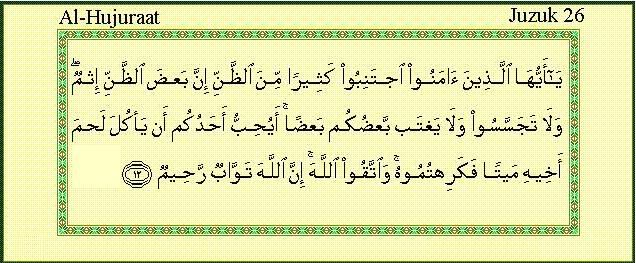 Al-Hujuraat Juzuk 26
يَـٰٓأَيُّهَا ٱلَّذِينَ ءَامَنُوا۟ ٱجْتَنِبُوا۟ كَثِيرًا مِّنَ ٱلظَّنِّ إِنَّ بَعْضَ ٱلظَّنِّ إِثْمٌ ۖ
وَلَا تَجَسَّسُوا۟ وَلَا يَغْتَب بَّعْضُكُم بَعْضًا ۚ أَيُحِبُّ أَحَدُكُمْ أَن يَأْكُلَ لَحْمَ
أَخِيهِ مَيْتًا فَكَرِهْتُمُوهُ ۚ وَٱتَّقُوا۟ ٱللَّهَ ۚ إِنَّ ٱللَّهَ تَوَّابٌ رَّحِيمٌ ١٢